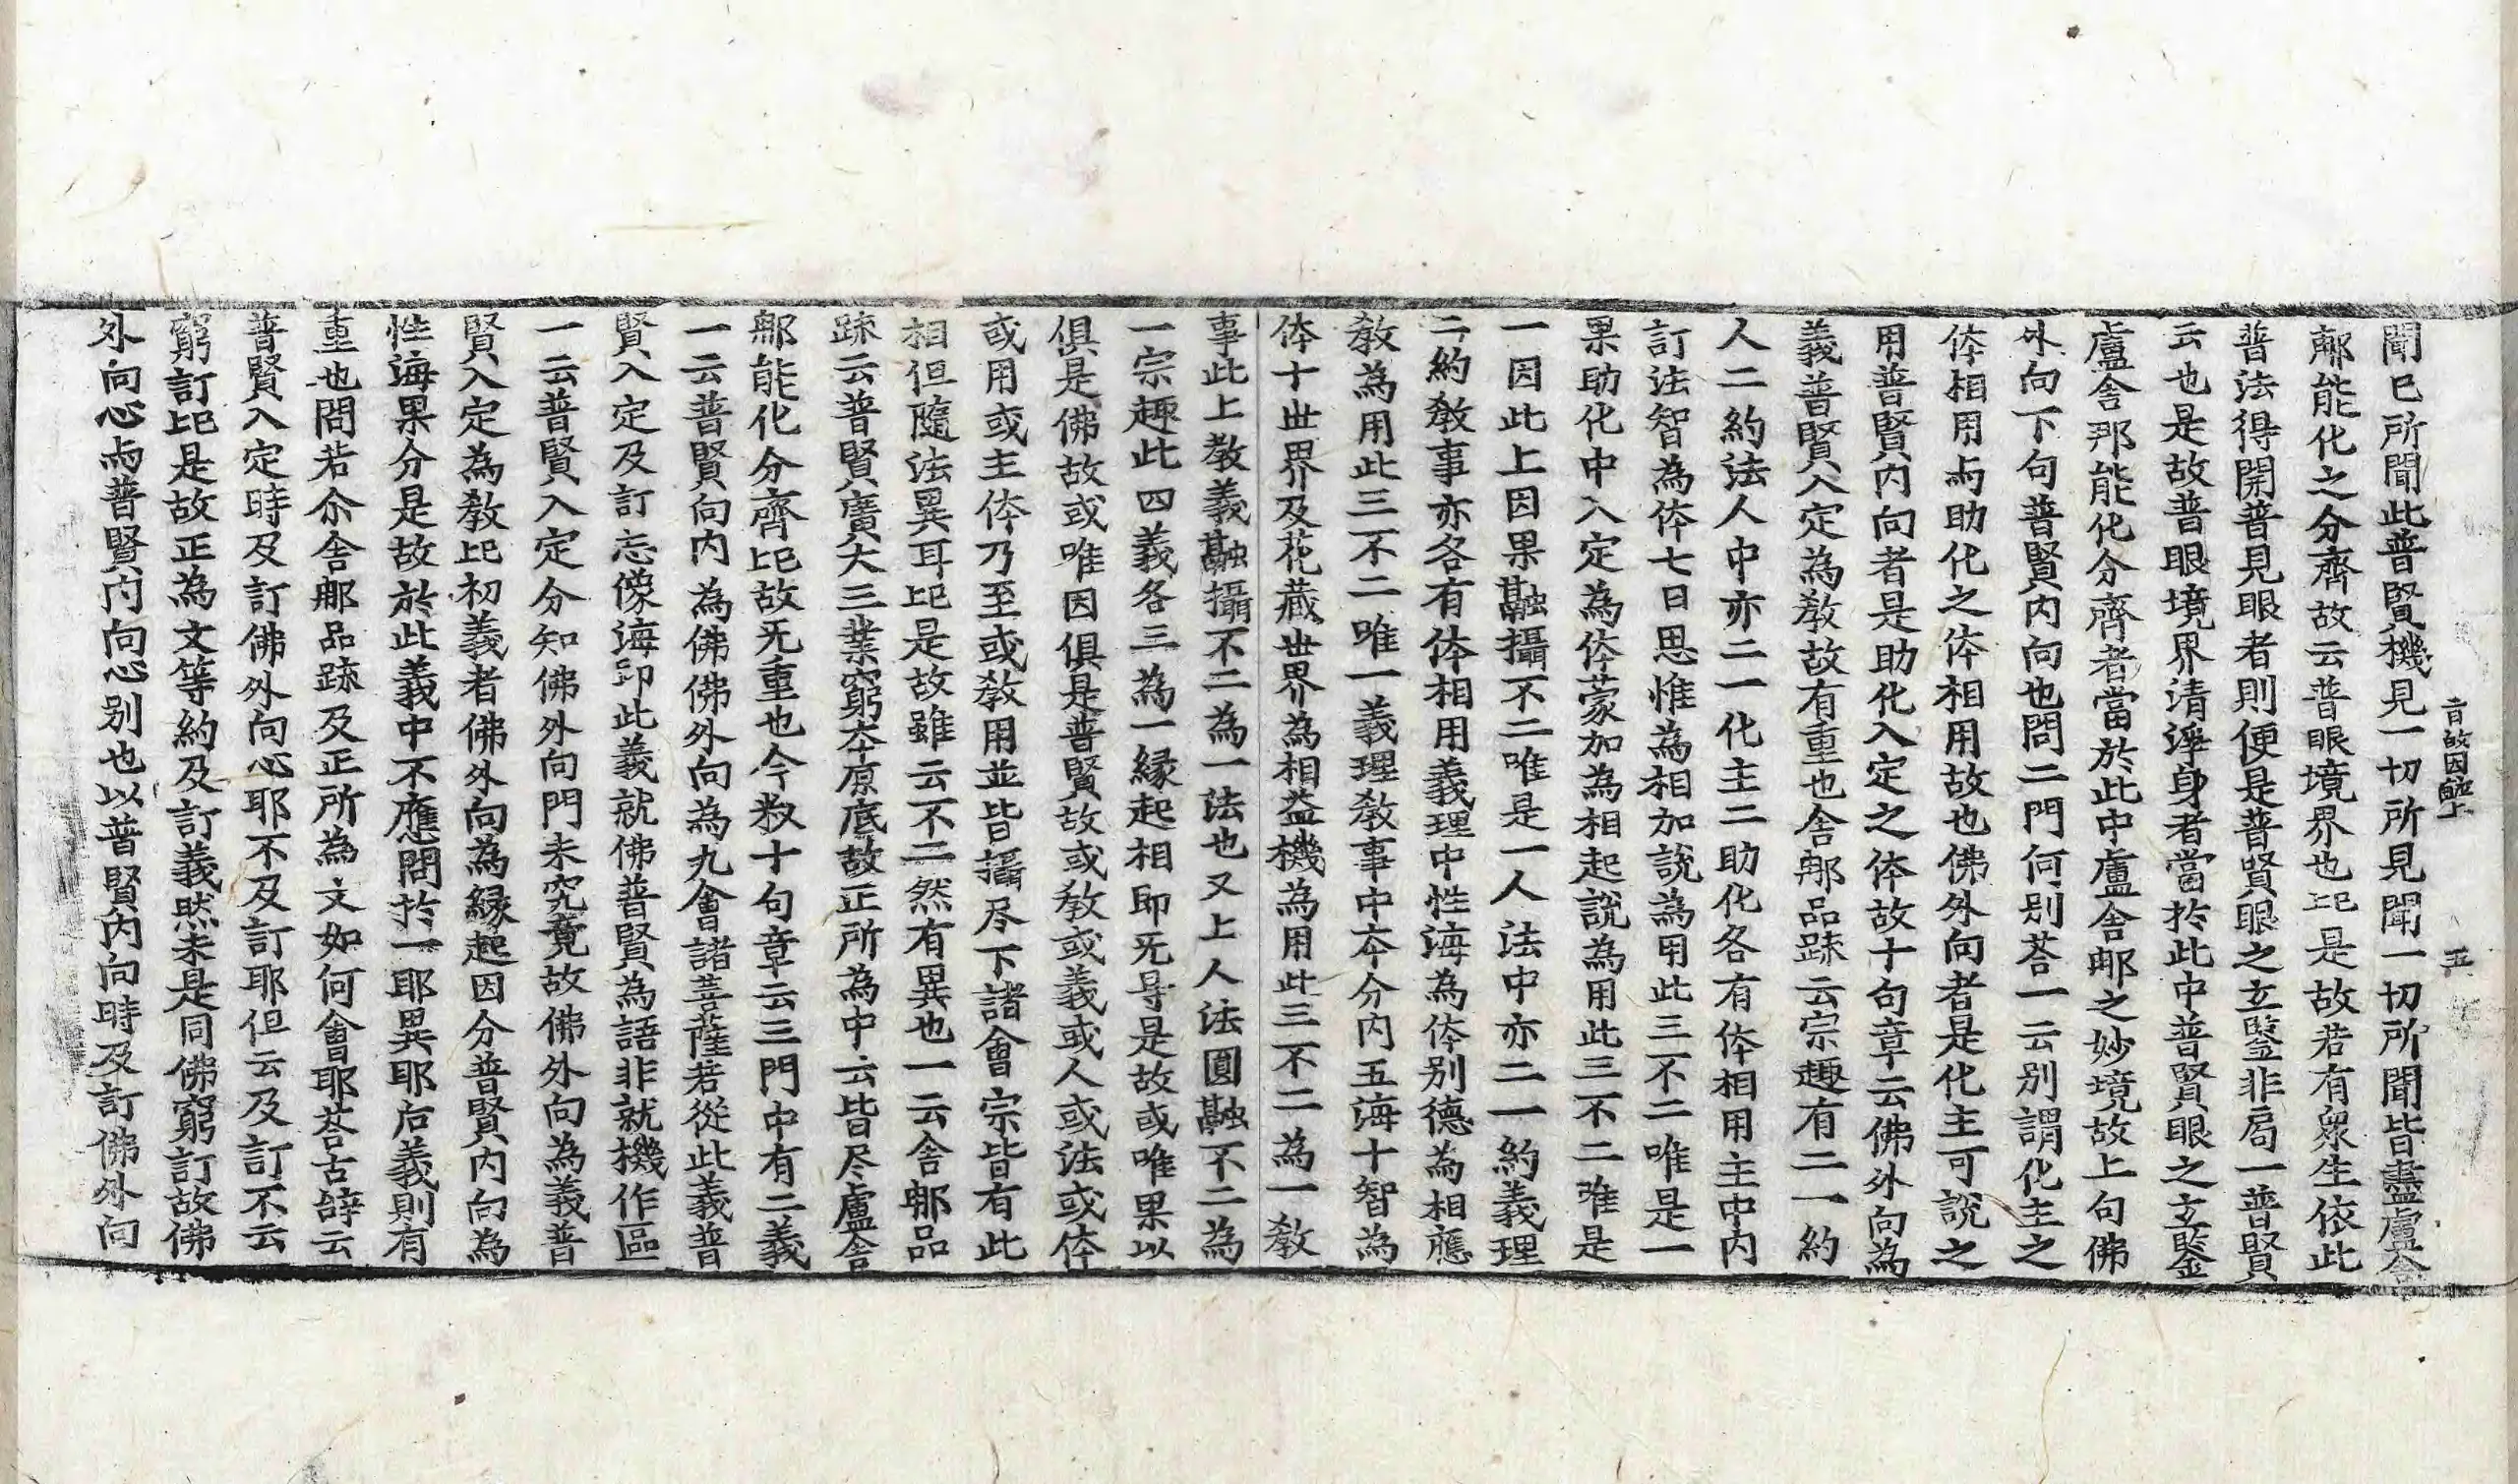 聞已所聞此普賢機見一切所見聞一切所聞皆盡盧舍
郍能化之分齊故云普眼境界也是故若有衆生依此
普法得開普見眼者則便是普賢眼之玄鑒非局一普賢
云也是故普眼境界清淨身者當於此中普賢眼之玄鑒
盧舍那能化分齊者當於此中盧舍郍之妙境故上句佛
外向下句普賢内向也問二門何別荅一云別謂化主之
体相用与助化之体相用故也佛外向者是化主可說之
用普賢内向者是助化入定之体故十句章云佛外向為
義普賢入定為敎故有重也舍郍品䟽云宗趣有二一約
人二約法人中亦二一化主二助化各有体相用主中内
訂法智為体七日思惟為相加說為用此三不二唯是一
果助化中入定為体蒙加為相起說為用此三不二唯是
一因此上因果融攝不二唯是一人法中亦二一約義理
二約敎事亦各有体相用義理中性海為体別德為相應
敎為用此三不二唯一義理敎事中夲分内五海十智為
体十世界及花藏世界為相益機為用此三不二為一敎
事此上敎義融攝不二為一法也又上人法圓融不二為
一宗趣此四義各三為一緣起相即无㝵是故或唯果以
俱是佛故或唯因俱是普賢故或敎或義或人或法或体
或用或主体乃至或敎用並皆攝尽下諸會宗皆有此
相但隨法異耳是故雖云不二然有異也一云舍郍品
䟽云普賢廣大三業窮夲原底故正所為中云皆尽盧舍
郍能化分齊故无重也今敎十句章云三門中有二義
一云普賢向内為佛佛外向為九會諸菩薩若從此義普
賢入定及訂忘像海印此義就佛普賢為語非就機作區
一云普賢入定分知佛外向門未究竟故佛外向為義普
賢入定為敎初義者佛外向為緣起因分普賢内向為
性海果分是故於此義中不應問於一耶異耶后義則有
重也問若尒舍郍品䟽及正所為文如何會耶荅古辞云
普賢入定時及訂佛外向心耶不及訂耶但云及訂不云
窮訂是故正為文等約及訂義然未是同佛窮訂故佛
外向心与普賢内向心別也以普賢内向時及訂佛外向
五